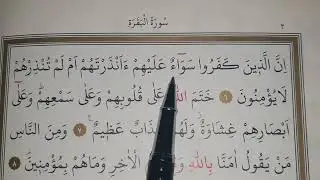 سُورَةُ الْبَقَرَةِ
٢
اِنَّ الَّذٖينَ كَفَرُوا سَوَٓاءٌ عَلَيْهِمْ ءَاَنْذَرْتَهُمْ اَمْ لَمْ تُنْذِرْهُمْ
لَا يُؤْمِنُونَ ﴿٦﴾ خَتَمَ اللّٰهُ عَلٰى قُلُوبِهِمْ وَعَلٰى سَمْعِهِمْ وَعَلٰٓى
اَبْصَارِهِمْ غِشَاوَةٌ وَلَهُمْ عَذَابٌ عَظٖيمٌ ﴿٧﴾ وَمِنَ النَّاسِ
مَنْ يَقُولُ اٰمَنَّا بِاللّٰهِ الْاٰخِرِ وَمَا هُمْ بِمُؤْمِنٖينَ ﴿٨﴾